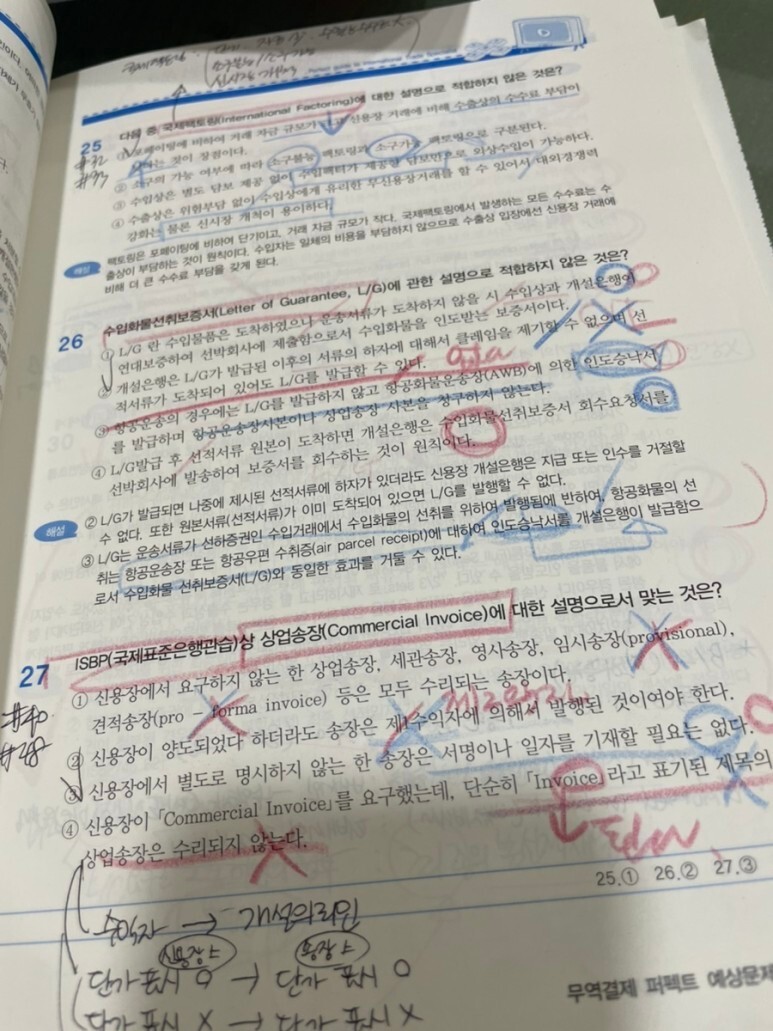 25 다음 중 국제팩토링(International Factoring)에 대한 설명으로 적합하지 않은 것은?
① 포페이팅에 비하여 거래 자금 규모가 신용장 거래에 비해 수출상의 수수료 부담이
것이 장점이다.
② 소구의 가능 여부에 따라 소구불능 팩토링과 소구가능 팩토링으로 구분된다.
③ 수입상은 별도 담보 제공 없이 수입팩터가 제공한 담보만으로 외상수입이 가능하다.
④ 수출상은 위험부담 없이 수입상에게 유리한 무신용장거래를 할 수 있어서 대외경쟁력
강화는 물론 신시장 개척이 용이하다.
해설 팩토링은 포페이팅에 비하여 단기이고, 거래 자금 규모가 작다. 국제팩토링에서 발생하는 모든 수수료는 수
출상이 부담하는 것이 원칙이다. 수입자는 일체의 비용을 부담하지 않으므로 수출상 입장에선 신용장 거래에
비해 더 큰 수수료 부담을 갖게 된다.
26 수입화물선취보증서(Letter of Guarantee, L/G)에 관한 설명으로 적합하지 않은 것은?
① L/G 란 수입물품은 도착하였으나 운송서류가 도착하지 않을 시 수입상과 개설은행이
연대보증하여 선박회사에 제출함으로서 수입화물을 인도받는 보증서이다.
② 개설은행은 L/G가 발급된 이후의 서류의 하자에 대해서 클레임을 제기할 수 없으며 선
적서류가 도착되어 있어도 L/G를 발급할 수 있다.
없다
③ 항공운송의 경우에는 L/G를 발급하지 않고 항공화물운송장(AWB)에 의한 인도승낙서
를 발급하며 항공운송장사본이나 상업송장 사본을 청구하지 않는다.
④ L/G발급 후 선적서류 원본이 도착하면 개설은행은 수입화물선취보증서 회수요청서를
선박회사에 발송하여 보증서를 회수하는 것이 원칙이다.
해설 ② L/G가 발급되면 나중에 제시된 선적서류에 하자가 있더라도 신용장 개설은행은 지급 또는 인수를 거절할
수 없다. 또한 원본서류(선적서류)가 이미 도착되어 있으면 L/G를 발행할 수 없다.
③ L/G는 운송서류가 선하증권인 수입거래에서 수입화물의 선취를 위하여 발행됨에 반하여, 항공화물의 선
취는 항공운송장 또는 항공우편 수취증(air parcel receipt)에 대하여 인도승낙서를 개설은행이 발급함으
로서 수입화물 선취보증서(L/G)와 동일한 효과를 거둘 수 있다.
27 ISBP(국제표준은행관습)상 상업송장(Commercial Invoice)에 대한 설명으로서 맞는 것은?
① 신용장에서 요구하지 않는 한 상업송장, 세관송장, 영사송장, 임시송장(provisional),
견적송장(pro – forma invoice) 등은 모두 수리되는 송장이다.
#40
#28
② 신용장이 양도되었다 하더라도 송장은 제1수익자에 의해서 발행된 것이여야 한다.
③ 신용장에서 별도로 명시하지 않는 한 송장은 서명이나 일자를 기재할 필요는 없다.
④ 신용장이 「Commercial Invoice」를 요구했는데, 단순히 「Invoice」라고 표기된 제목의
상업송장은 수리되지 않는다.
25.① 26.② 27.③
수익자 → 개설의뢰인
단가 표시 O → 단가 표시 O
단가 표시 X → 단가 표시 X
무역결제 퍼펙트 예상문제